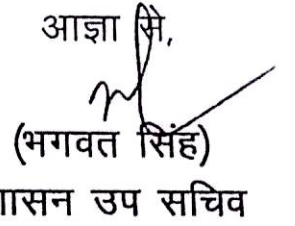 आज्ञा से,
(भगवत सिंह)
उप सचिव